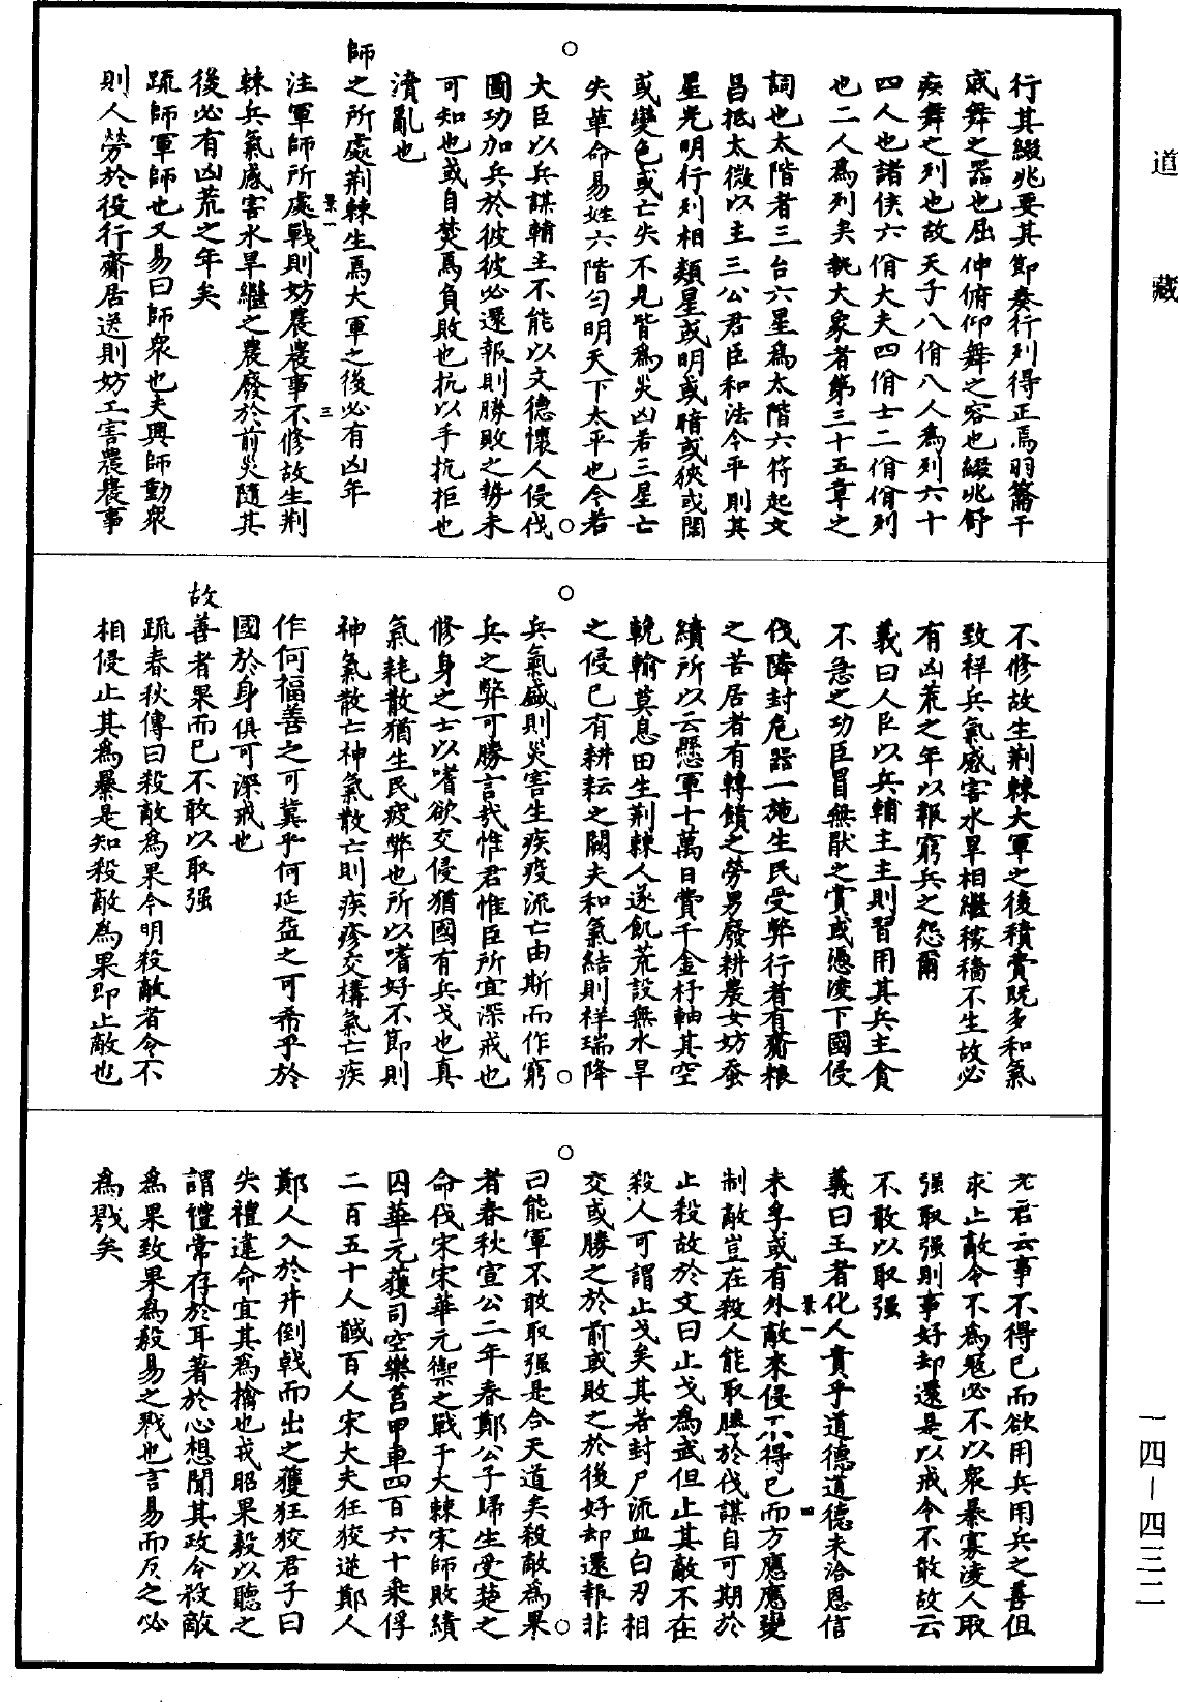 道藏
行其綴兆要其節奏行列得正焉羽籥干
戚舞之器也屈伸俯仰舞之容也綴兆舒
疾舞之列也故天子八佾八人為列六十
四人也諸侯六佾大夫四佾士二佾佾列
也二人為列矣執大象者第三十五章之
詞也太階者三台六星為太階六符起文
昌抵太微以主三公君臣和法令平則其
星光明行列相類星或明或暗或狹或闊
或變色或亡失不見皆為災凶若三星亡
失革命易姓六階勻明天下太平也令若
大臣以兵謀輔主不能以文德懷人侵伐
圖功加兵於彼彼必還報則勝敗之勢未
可知也或自焚焉負敗也抗以手抗拒也
潰亂也
師之所處荊棘生焉大軍之後必有凶年
注軍師所處戰則妨農農事不修故生荊
棘兵氣感害水旱繼之農廢於前災隨其
後必有凶荒之年矣
疏師軍師也又易曰師衆也夫興師動衆
則人勞於役行齎居送則妨工害農農事
不修故生荊棘大軍之後積費既多和氣
致祥兵氣感害水旱相繼稼穡不生故必
有凶荒之年以報窮兵之怨爾
義曰人臣以兵輔主主則習用其兵主貪
不急之功臣冒無猒之賞或憑淩下國侵
伐隣封危器一施生民受弊行者有齎粮
之苦居者有轉饋之勞男廢耕農女妨蚕
績所以云懸軍十萬日費千金杼軸其空
輓輸莫息田生荊棘人遂飢荒設無水旱
之侵已有耕耘之闕夫和氣結則祥瑞降
兵氣盛則災害生疾疫流亡由斯而作窮
兵之弊可勝言哉惟君惟臣所宜深戒也
修身之士以嗜欲交侵猶國有兵戈也真
氣耗散猶生民疲弊也所以嗜好不節則
神氣散亡神氣散亡則疾疹交構氣亡疾
作何福善之可冀乎何延益之可希乎於
國於身俱可深戒也
故善者果而已不敢以取强
疏春秋傳曰殺敵為果今明殺敵者令不
相侵止其為暴是知殺敵為果即止敵也
老君云事不得已而欲用兵用兵之善但
求止敵令不為寇必不以衆暴寡淩人取
强取强則事好却還是以戒令不敢故云
不敢以取强
義曰王者化人貴乎道德道德未洽恩信
未孚或有外敵來侵不得已而方應應變
制敵豈在殺人能取勝於伐謀自可期於
止殺故於文曰止戈為武但止其敵不在
殺人可謂止戈矣其若封尸流血白刃相
交或勝之於前或敗之於後好却還報非
曰能軍不敢取强是合天道矣殺敵為果
者春秋宣公二年春鄭公子歸生受楚之
命伐宋宋華元禦之戰于大棘宋師敗績
囚華元獲司空樂莒甲車四百六十乘俘
二百五十人馘百人宋大夫狂狡逆鄭人
鄭人入於井倒戟而出之獲狂狡君子曰
失禮違命宜其為擒也戎昭果毅以聽之
謂禮常存於耳著於心想聞其政令殺敵
為果致果為毅易之戮也言易而反之必
為戮矣
一四—四三二